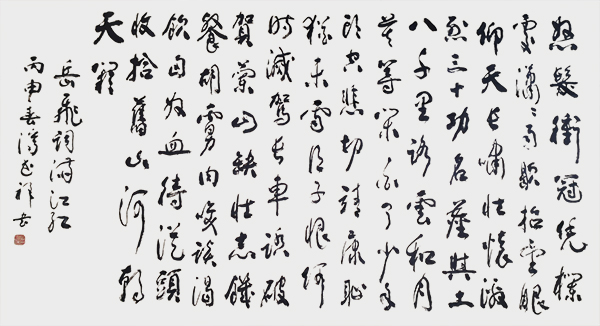 怒髮衝冠凭欄
處潇〻雨歇抬望眼
仰天長嘯壯懷激
烈三十功名塵與土
八千里路雲和月
莫等闲白了少年
頭空悲切靖康恥
猶未雪臣子恨何
時滅駕長車踏破
賀蘭山缺壯志饑
餐胡虜肉笑談渴
飲匈奴血待從頭
收拾舊山河朝
天闕
岳飛詞滿江紅
丙申春祥書